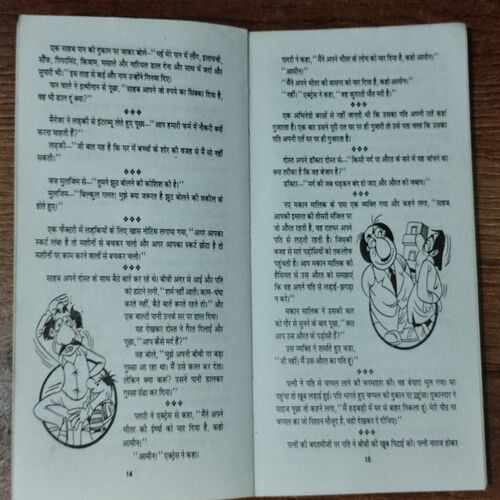 एक साहब पान की दुकान पर जाकर बोले—"भई मेरे पान में लौंग, इलायची,
सौंफ, पिपरमिंट, किवाम, मसाले और नारियल डाल देना और साथ में जर्दा और
सुपारी भी।" इस तरह से कई और नाम उन्होंने गिनवा दिए।
पान वाले ने इत्मीनान से पूछा, "साहब आपने जो रुपये का सिक्का दिया है,
वह भी डाल दूं क्या?"
मैनेजर ने लड़की से इंटरव्यू लेते हुए पूछा—"आप हमारी फर्म में नौकरी क्यों
करना चाहती हैं?"
लड़की—"जी बात यह है कि घर में बच्चों के शोर की वजह से मैं सो नहीं
सकती।"
जज मुलजिम से—"तुमने झूठ बोलने की कोशिश की है।"
मुलजिम—"बिल्कुल गलत! मुझे क्या जरूरत है झूठ बोलने की वकील के
होते हुए।"
एक फैक्टरी में लड़कियों के लिए खास नोटिस लगाया गया, "अगर आपका
स्कर्ट लंबा है तो मशीनों से बचकर चलो और अगर आपका स्कर्ट छोटा है तो
मशीनों पर काम करने वालों से बचकर चलो।"
साहब अपने दोस्त के साथ बैठे बातें कर रहे थे। बीवी अंदर से आई और पति
को डांटने लगी, "शर्म नहीं आती। काम-धंधा
करते नहीं, बैठे बातें करते रहते हो।" और
एक बाल्टी पानी उनके सर पर डाल दिया।
यह देखकर दोस्त ने गैरत दिलाई और
पूछा, "आप कैसे मर्द हैं?"
वह बोले, "मुझे अपनी बीवी पर बड़ा
गुस्सा आ रहा था। मैं उसे कत्ल कर देता।
लेकिन क्या करूं? उसने पानी डालकर
गुस्सा ठंडा कर दिया।"
पादरी ने एक्ट्रेस से कहा, "मैंने अपने
भीतर की ईर्ष्या को मार दिया है, कहो
आमीन।"
"आमीन!" एक्ट्रेस ने कहा।
14
पादरी ने कहा, "मैंने अपने भीतर के लोभ को मार दिया है, कहो आमीन।"
"आमीन।"
"मैंने अपने भीतर की वासना को मार दिया है, कहो आमीन।"
"नहीं!" एक्ट्रेस ने कहा, "वह कुदरती मौत मरी है।"
एक अभिनेत्री बरसों से नहीं जानती थी कि उसका पति अपनी रातें कहां
गुजारता है। एक बार उसने पूरी रात घर पर ही गुजारी तो उसे पता चला कि उसका
पति अपनी रातें घर पर ही गुजारता है।
दोस्त अपने डॉक्टर दोस्त से—"किसी मर्द या औरत के बारे में यह जांचने का
क्या तरीका है कि वह बेजान है?"
डॉक्टर—"मर्द की जब धड़कन बंद हो जाए और औरत की जबान।"
नए मकान मालिक के पास एक व्यक्ति गया और कहने लगा, "साहब
आपकी इमारत की तीसरी मंजिल पर
जो औरत रहती है, वह रातभर अपने
पति से लड़ती रहती है। जिसकी
वजह से सारे पड़ोसियों को तकलीफ
पहुंचती है। आप मकान मालिक की
हैसियत से उस औरत को समझाएं
कि वह अपने पति से लड़ाई-झगड़ा
न करे।"
मकान मालिक ने उसकी बात
को गौर से सुनने के बाद पूछा, "क्या
आप उस औरत के पड़ोसी हैं?"
उस व्यक्ति ने शर्माते हुए कहा,
"जी नहीं! मैं उस औरत का पति हूं।"
पत्नी ने पति से चप्पल लाने की फरमाइश की। वह बेचारा भूल गया। घर
पहुंचा तो खूब लड़ाई हुई। पति भागते हुए चप्पल की दुकान पर पहुंचा। दुकानदार ने
साइज पूछा तो कहने लगा, "मैं हड़बड़ी में घर से बाहर निकला हूं। मेरी पीठ पर
चप्पल का जो निशान मौजूद है, वही देखकर दे दीजिए।"
पत्नी की बदतमीजी पर पति ने बीवी की खूब पिटाई की। पत्नी नाराज होकर
15